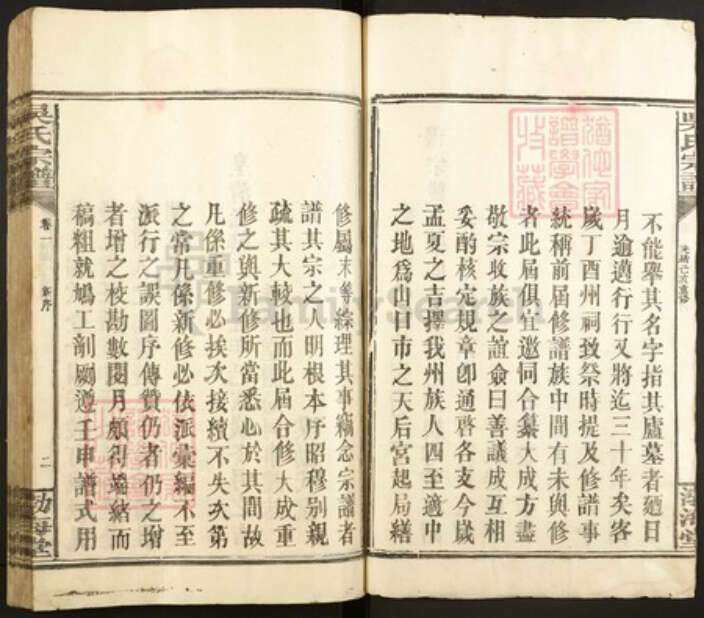 吳氏宗譜
渤海堂
不能舉其名字指其廬墓者廼日
月逾邁行行又將迄三十年矣客
歲丁酉州祠致祭時提及修譜事
統稱前屆修譜族中間有未與修
者此屆俱宜邀同合纂大成方盡
敬宗收族之誼僉曰善議成互相
妥酌核定規章卽通啓各支今歲
孟夏之吉擇我州族人四至適中
之地爲山口市之天后宮起局繕
修屬末等綜理其事竊念宗譜者
譜其宗之人明根本序昭穆别親
疏其大較也而此屆合修大成重
修之與新修所當悉心於其間故
凡係重修必挨次接續不失次第
之常凡係新修必依派彙編不至
派行之誤圖序傳贊仍者仍之增
者增之校勘數閱月頗得端緒而
稿粗就鳩工剞劂遵壬申譜式用
吳氏宗譜
卷一
二
渤海堂
譜學會
收藏
FamilySearch